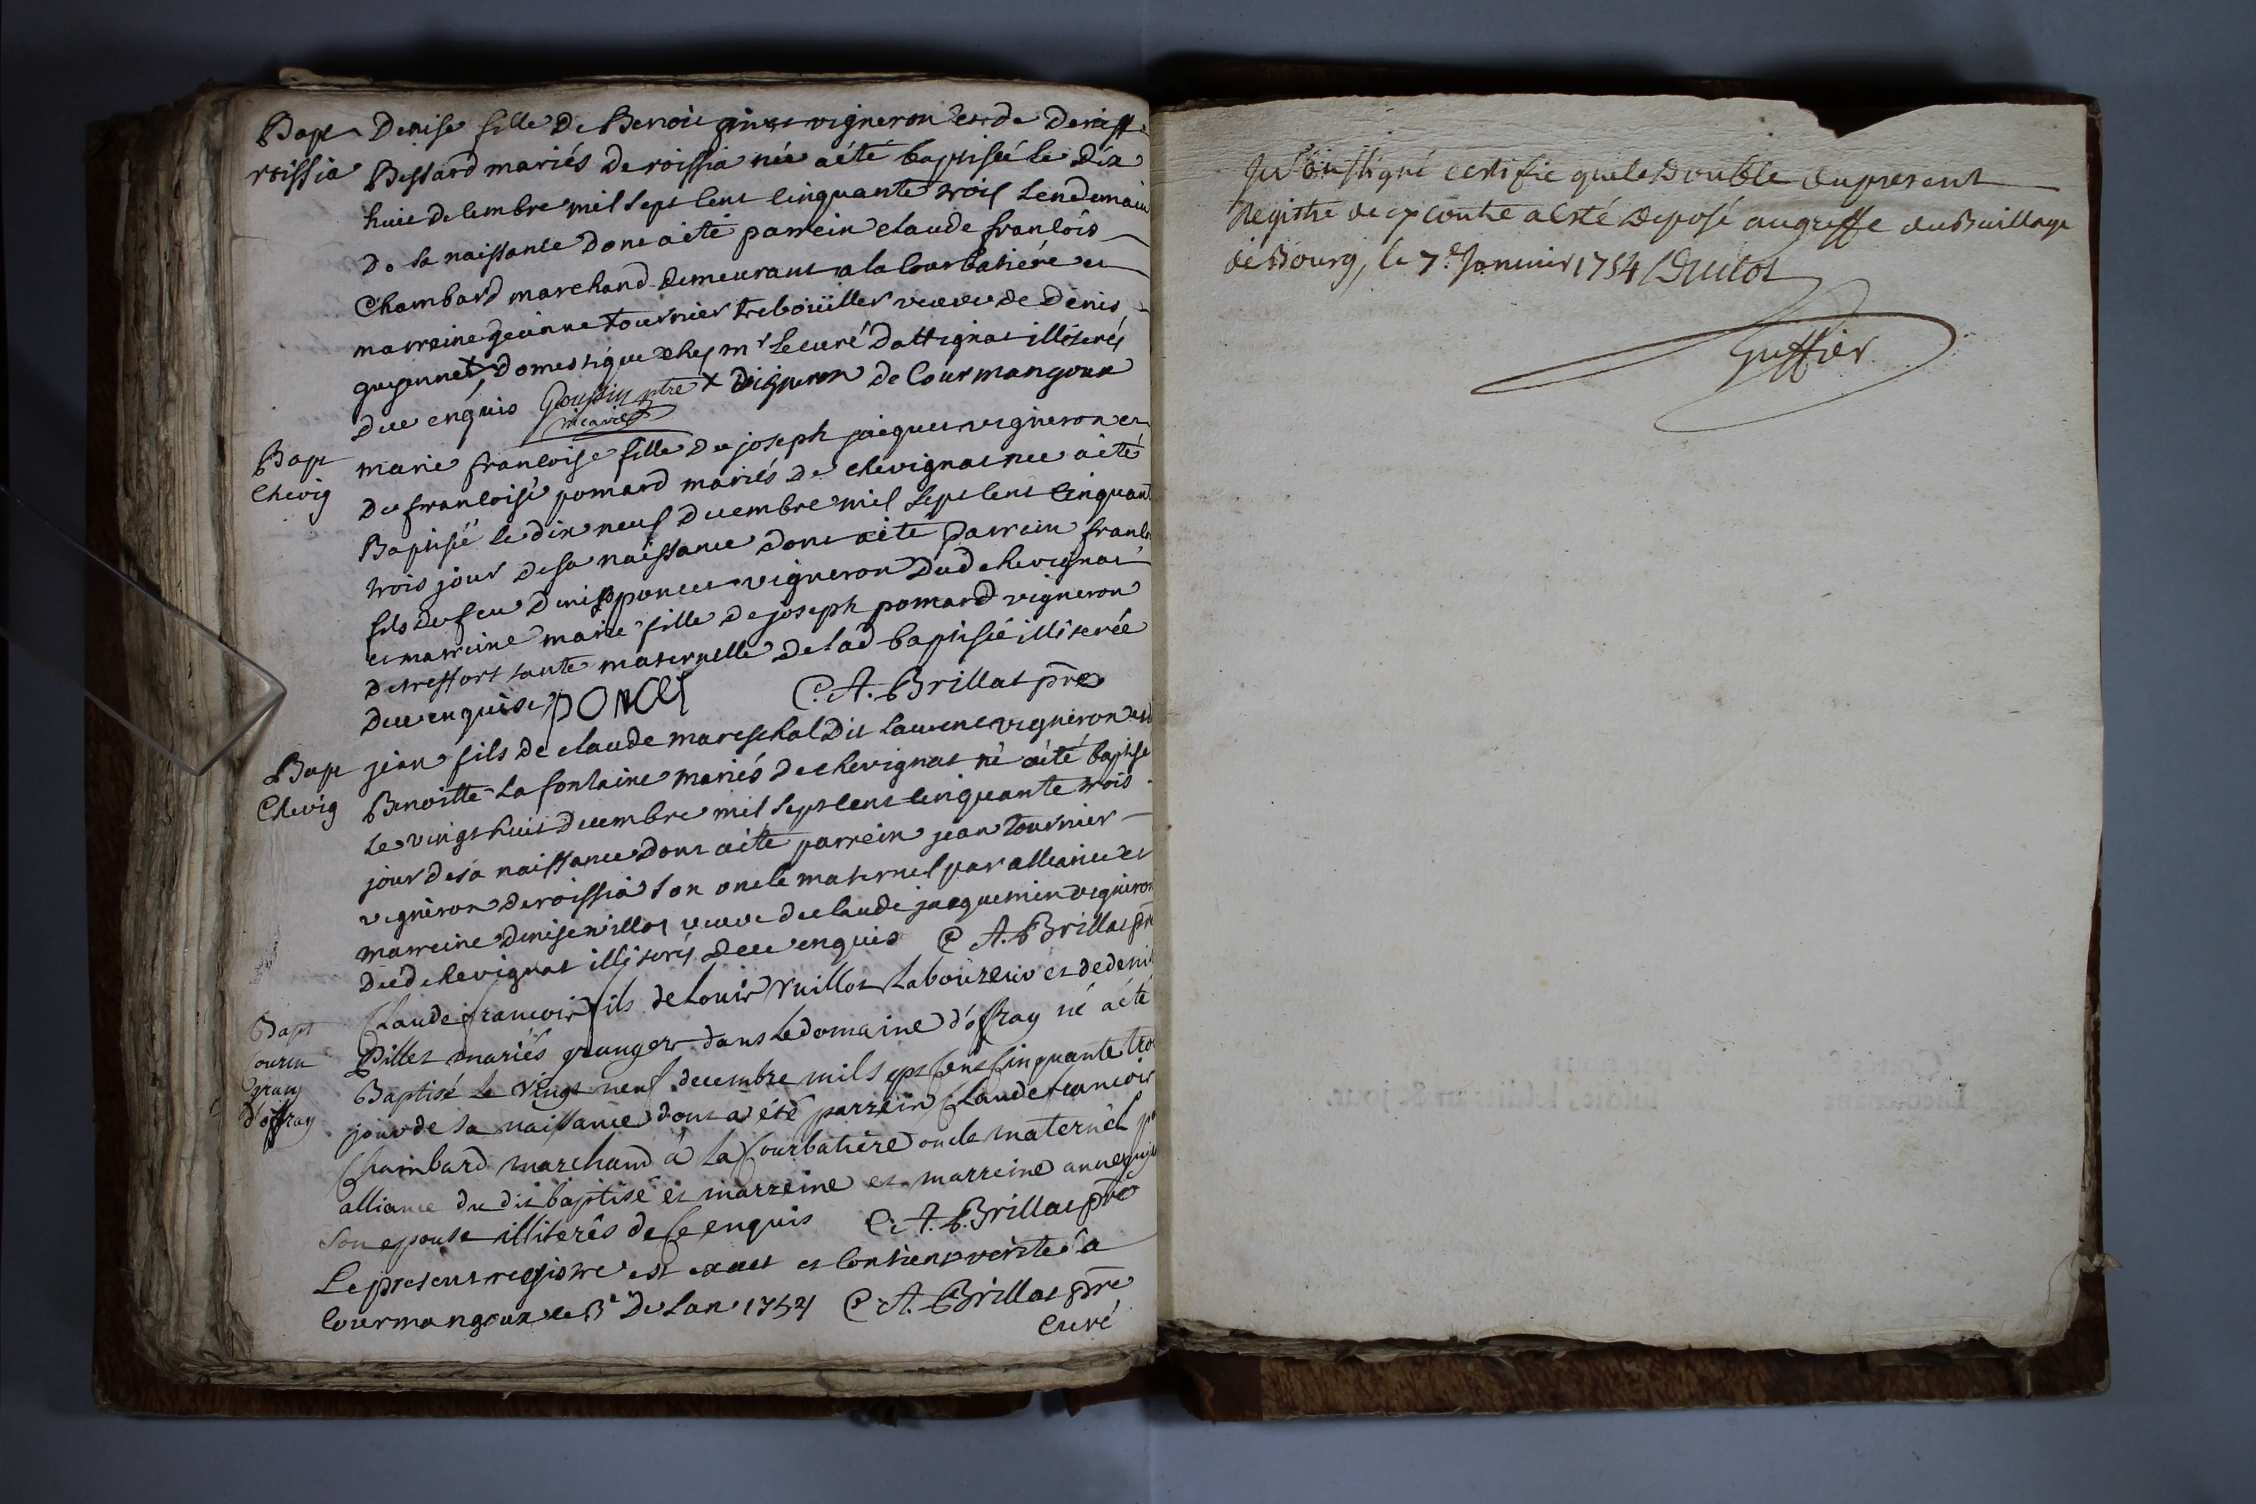 Bapt Denise fille De Benoit vigneron et de Denisse
roissia Bessard mariés de roissia née a été baptisée le dix
huit decembre mil sept cent cinquante trois Lendemain
De sa naissance dont a été parrein claude francois
Chambard marchand demeurant a la Courbatiére et
marreine jeanne tournier trebouïller veuve de Denis
guyonnet x domestique chez mr Le curé Dattignat illiterés
Dece enquis Goussin ptre x vigneron de Courmangoux
vicaire
Bapt marie francoise fille De joseph jacquet vigneron et
Chevig De francoise pomard mariés De chevignat née a été
Baptisée le dix neuf Decembre mil Sept cent cinquant
trois jour de sa naissance dont a été parrein franc
fils de feu Denis poncet vigneron Dud chevignat
et marreine marie fille de joseph pomard vigneron
de treffort tante maternelle de lad baptisée illiterée
Dece enquise PONCET C. A. Brillat pre
Bapt jean fils de claude mareschal Dit Laurent vigneron et d
Chevig Benoitte La fontaine mariés de chevignat né a été baptisé
le vingt huit Decembre mil Sept cent cinquante trois
jour de sa naissance dont a été parrein jean tournier
vigneron de roissia son oncle maternel par alliance et
marreine Denise veuve de claude jacquemin vigneron
Dud chevignat illiterés Dece enquis C. A. Brillat pre
Bapt Claude francois fils de Louis Vuillot Laboureur et de denis
Pillet mariés granger dans le domaine d'offray né a été
grang Baptisé le vingt neuf decembre mil sept cent cinquante tro
d'offray jour de sa naissance dont a été parrein Claude francois
Chambard marchand à la Courbatière oncle maternel p
alliance du dit baptisé et marreine et marreine anne
son epouse illiterés de ce enquis C. A. Brillat pre
Le present registre est exact et contient verité a
Courmangoux le De Lan 1754 C. A. Brillat pre
curé
Je Soussigné certifie que le Double du present
Registre de contre a esté deposé au greffe du Bailliage
de Bourg, le 7e Janvier 1754
Greffier